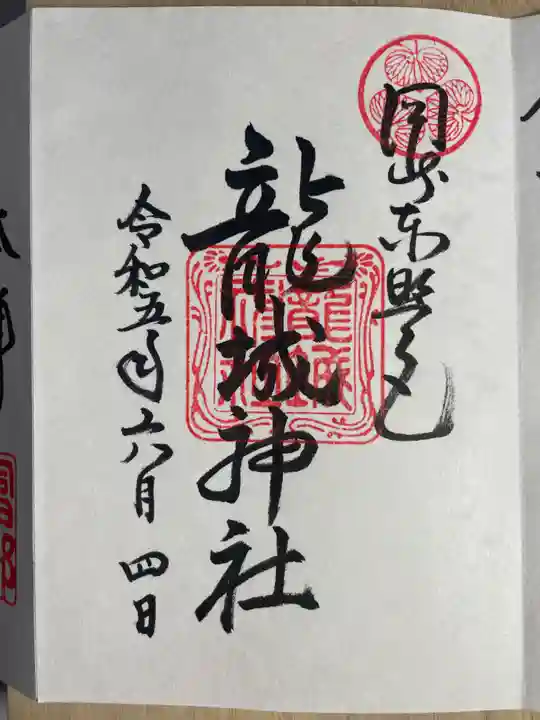 岡崎東照宮
龍城神社
令和五年六月四日